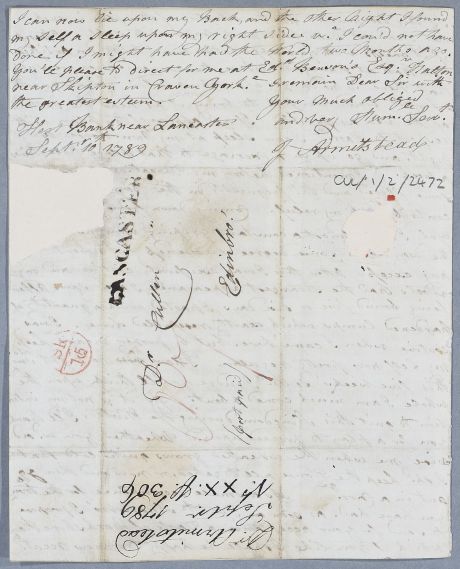 I can now lie upon my Back, and the other Night I found
my self a sleep upon my right side wch. I could not have
done if I might have had the World, two Months ago.
You'll please to direct for me at Edwd Beuvon's Esqr.
near Skipton in Craven Yorke. I remain Dear Sir with
the greatest esteem. Your Much obliged
Bank near Lancaster and very Hum.ble Servt.
Septr. 10th 1789
J Armitstead
CUL/1/2/2472
LANCASTER
Dr Cullen
Edinbro'
(post paid)
SE
16
Dr. Armitstead
Septr. 1789
No XX p. 306